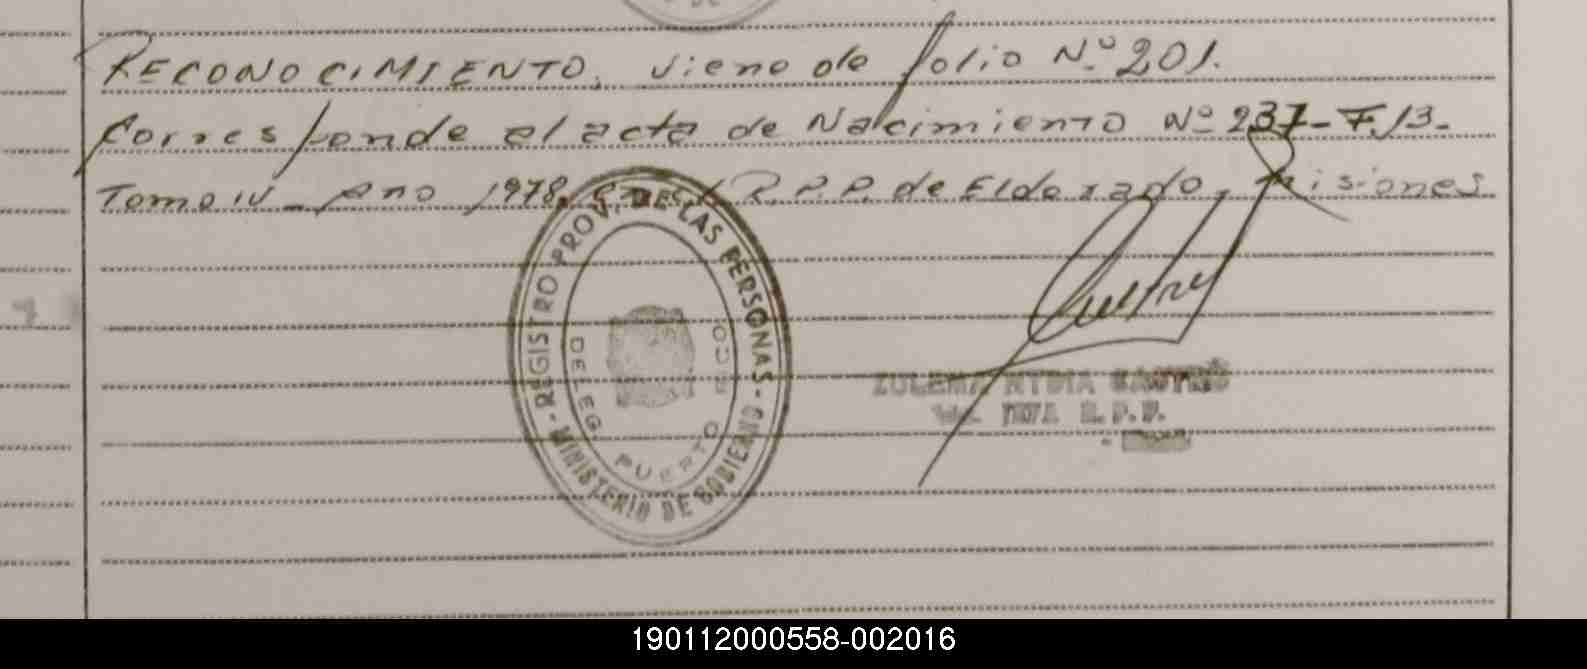 RECONOCIMIENTO, viene de folio Nº 201.
Corresponde al acta de Nacimiento Nº 237-F/3-
Tomo IV - Año 1978, R.P.P. de Eldorado, Misiones
- REGISTRO PROV. DE LAS PERSONAS -
MINISTERIO DE GOBIERNO
DELEG. PUERTO
ZULEMA NYDIA CASTRO
JEFA R.P.P.
190112000558-002016